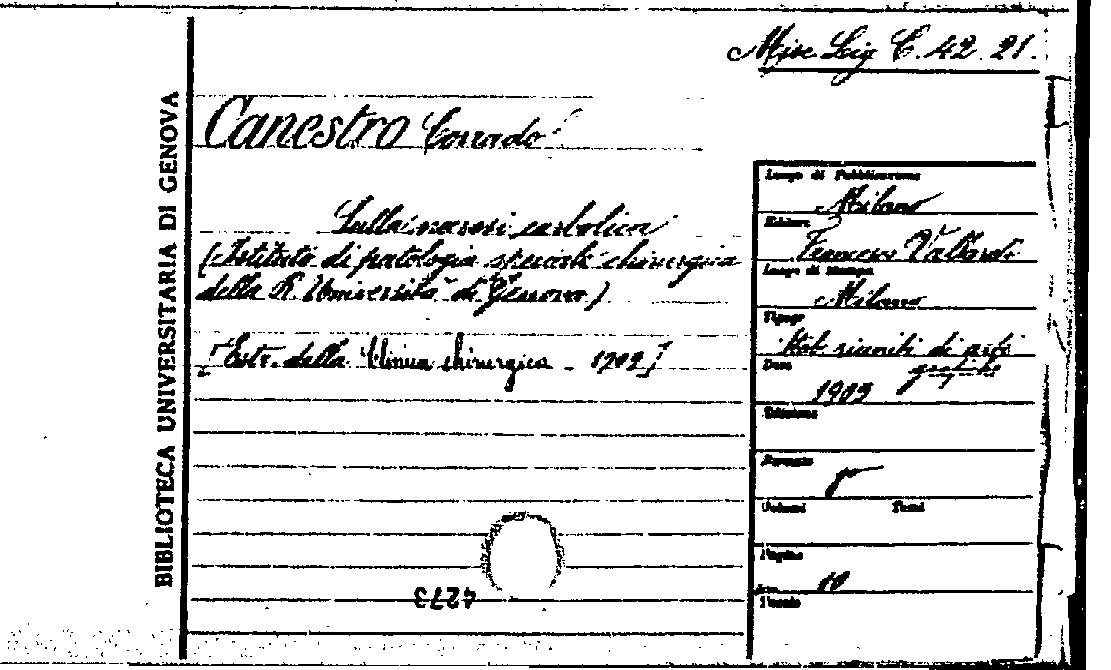 Misc Lig C. 42. 21.
BIBLIOTECA UNIVERSITARIA DI GENOVA
Canestro Corrado
Sulla narcosi carbolica
(Istituto di patologia speciale chirurgica
della R. Università di Genova)
[Estr. della Clinica chirurgica - 1902]
4273
Luogo di Pubblicazione
Milano
Editore
Francesco Vallardi
Luogo di Stampa
Milano
Tipogr
Stab. riuniti di arti
grafiche
Data
1903
Edizione
Formato
8°
Volumi Tomi
Pagine
10